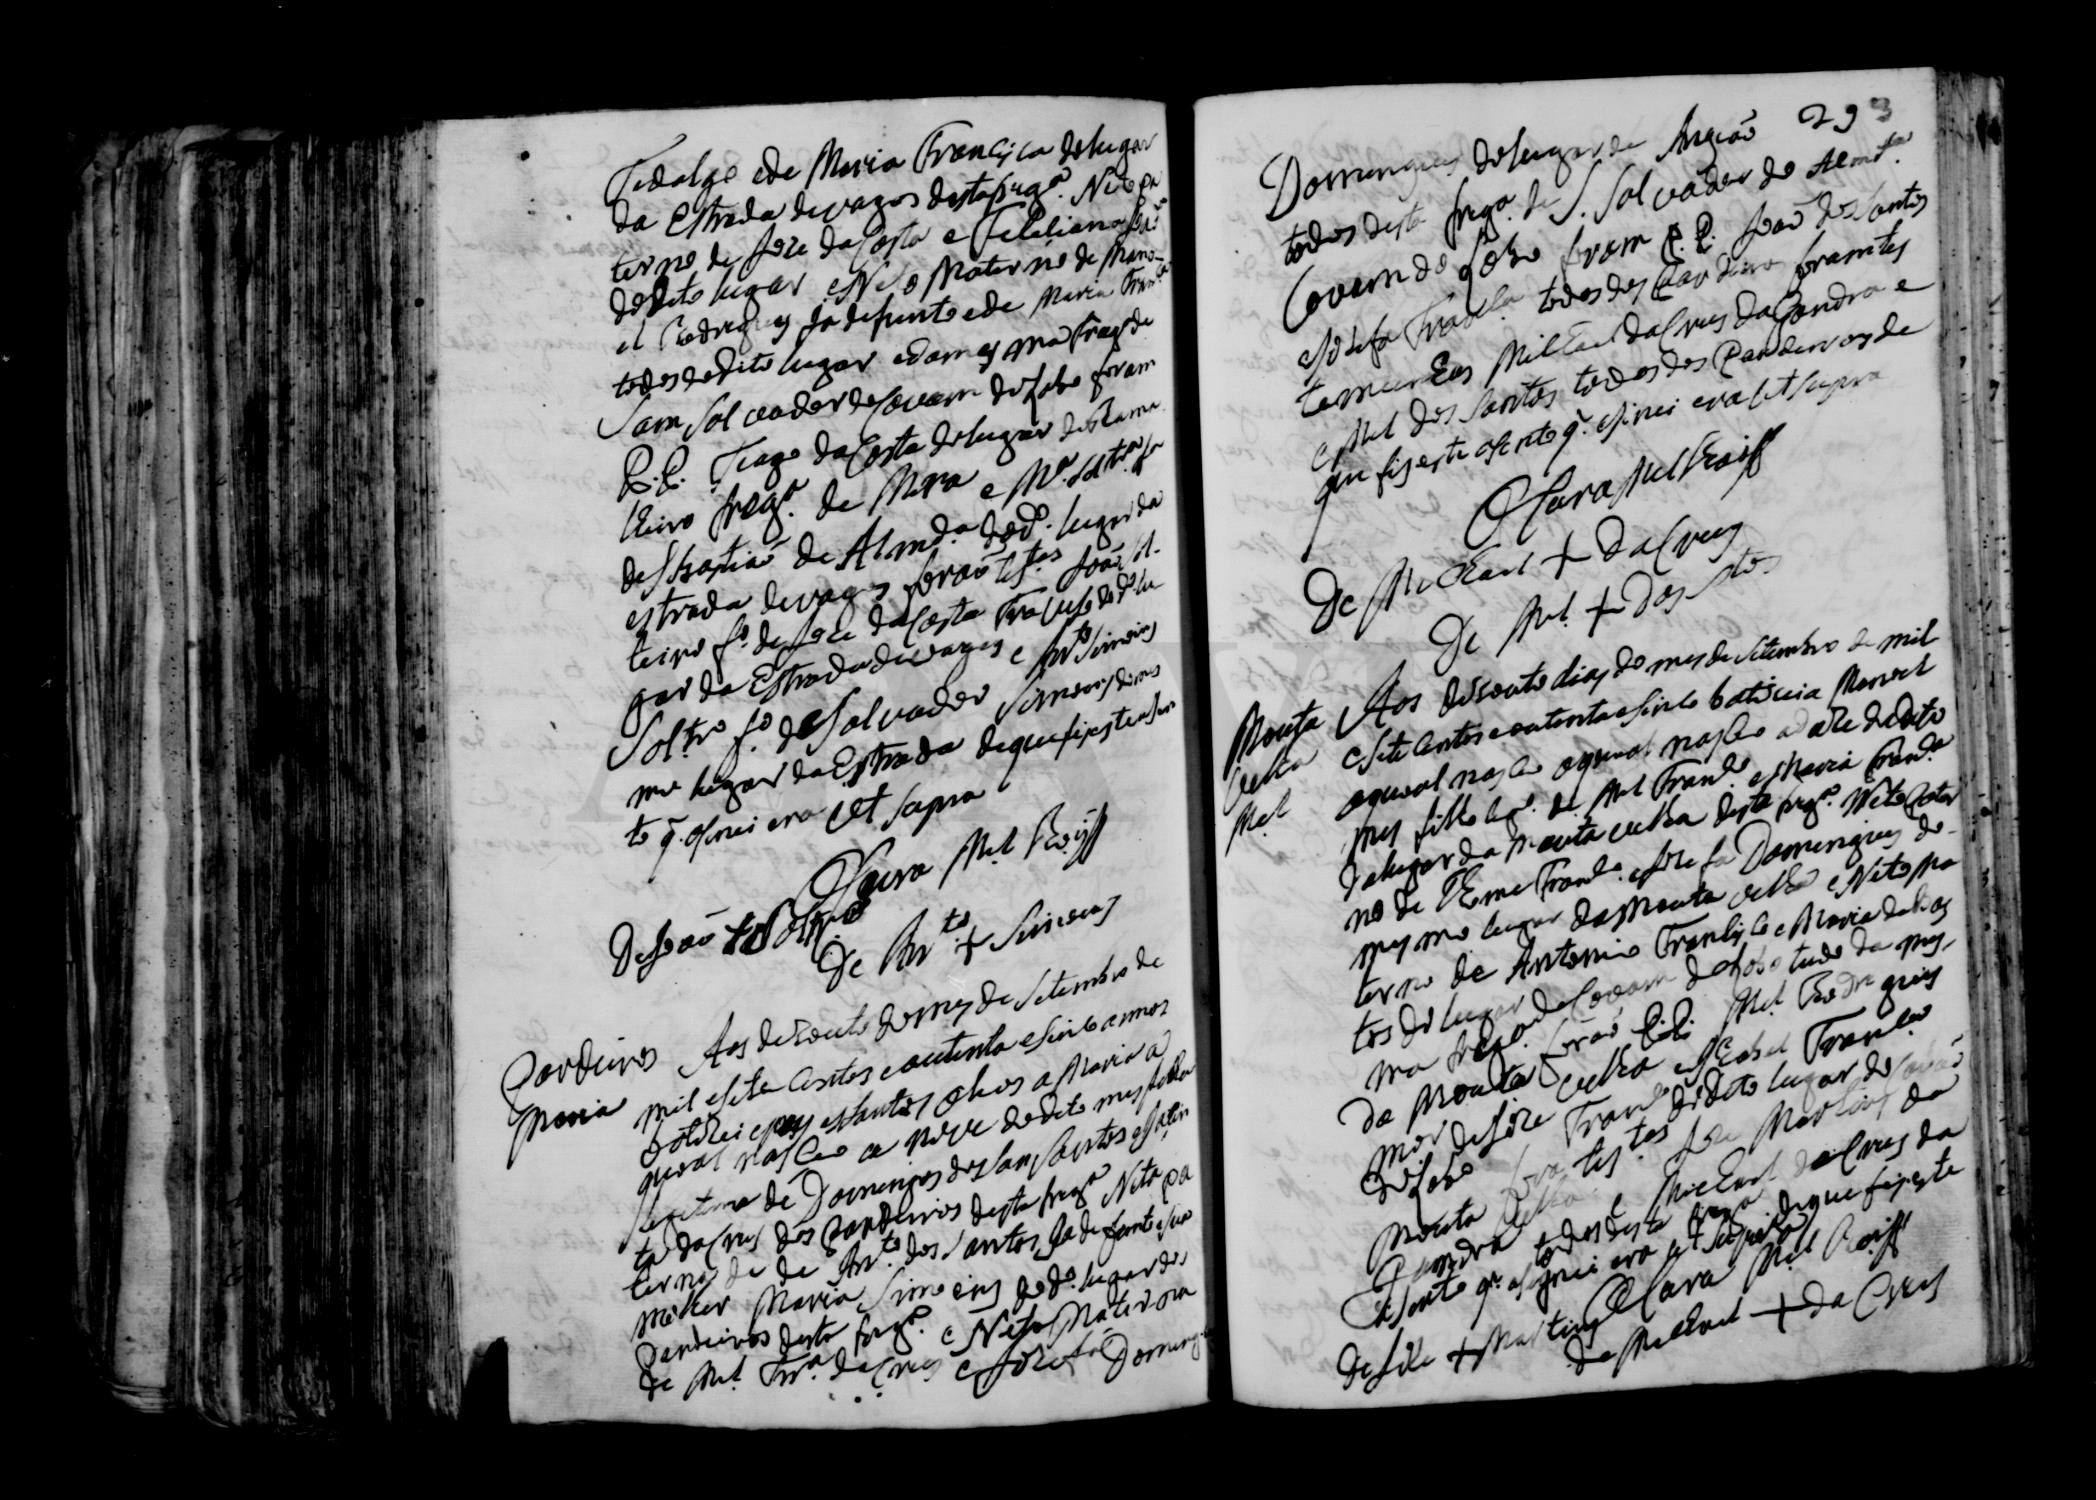 Fidalgo e de Maria Francisca do lugar
da Estrada de vagos desta freg.ª Neto pa
terno de Joze da Costa e Feleliana
do dito lugar e Neto Materno de Mano-
el Rodrigues ja defunto e de Maria Fran.ca
todos do dito lugar e da mesma freg.ª de
Sam Salvador de Covam do Lobo foram
P.P. Tiago da Costa do lugar do Rama
lheiro freg.ª de Mira e M.ª solt.ra f.ª
de Sbastiaõ de Almd.ª do d.º lugar da
estrada de vagos foraõ test.as Joaõ sol-
teiro f.º de Joze da Costa Travesso do d.º lu
gar da Estrada de vagos e An.to Simois
Solt.ro f.º de Salvador Simois do mes
mo lugar da Estrada de que fis este asen
to q. asinei era Ut supra
O Cura M.el Roiz
De Joaõ + Solt.ro
De An.to + Simois
Pardeiros
Maria
Aos desouto do mes de Setembro de
mil e sete centos e outenta e sinco annos
batizei e pus os santos olios a Maria a
qual nasceo a nove do dito mes filha
legitima de Domingos dos Santos e Jasin
ta da Crus dos Pardeiros desta freg.ª Neta pa
terna de de An.to dos Santos ja defunto e sua
molher Maria Simois do d.º lugar dos
Pardeiros desta freg.ª e Neta Materna
de M.el Frr.ª da Crus e Josefa Doming
293
Domingues do lugar de
todos desta freg.ª de S. Salvador do
Covam do Lobo foram P.P. Joaõ dos Santos
e Josefa todos dos Pardeiros foram tes
temunhas Michael da Crus da Gandra e
e M.el dos Santos todos dos Pardeiros de
que fis este asento q. asinei era Ut supra
O Cura M.el Roiz
De Michael + da Crus
De M.el + dos S.tos
Mouta
velha
M.el
Aos desouto dias do mes de Setembro de mil
e sete centos e outenta e sinco batizei a Manoel
o qual nasceo o qual nasceo a do dito
mes filho leg.º de M.el Fran.co e Maria Fran.ca
do lugar da Mouta velha desta freg.ª Neto Pater
no de Fran.co e Josefa Domingues do
mesmo lugar da Mouta velha e Neto Ma
terno de Antonio Francisco e Maria
tos do lugar de Covam do Lobo tudo da mes
ma freg.ª foraõ P.P. M.el Rodrigues
da Mouta velha e Fran.ca
mer de Joze Fran.co do dito lugar de Covaõ
do Lobo foraõ tes.tas Joze Martins da
Mouta velha e Michael da Crus da
Gandra todos desta freg.ª de que fis este
asento q. asinei era ut supra
O Cura M.el Roiz
De Joze + Martins
De Michael + da Crus